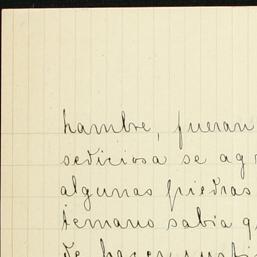 hambre, fueran
sediciosa se ag
algunas piedras
temano sabia q
de hacer justi